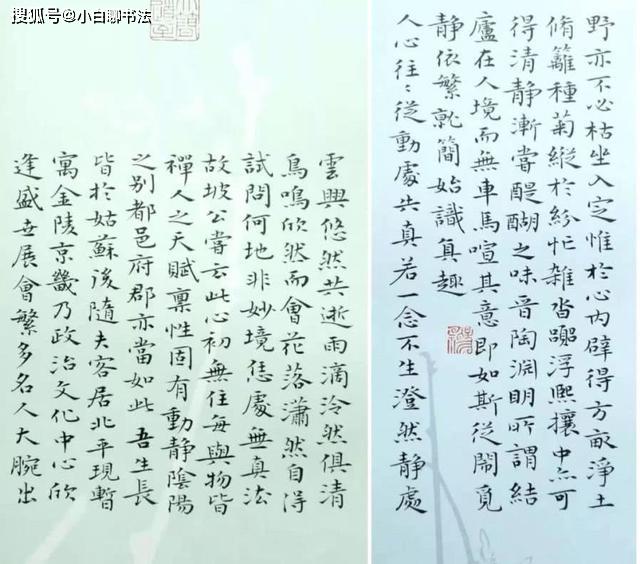 搜狐号@小白聊书法
野亦不必枯坐入定惟於心内辟得方畝淨土
脩籬種菊縱於紛忙雜沓躁浮熙攘中亦可
得清静漸當醍醐之味晋陶淵明所謂結
廬在人境而無車馬喧其意即如斯從鬧覓
静依繁就簡始識真趣
人心往々從動處失真若一念不生澄然静處
雲興悠然共逝雨滴泠然俱清
鳥鳴欣然而會花落瀟然自得
試問何地非妙境恁處無真法
故坡公嘗云此心初無住每與物皆
禪人之天賦稟性固有動静陰陽
之别都邑府郡亦當如此吾生長
皆於姑蘇後隨夫客居北平現暫
寓金陵京畿乃政治文化中心欣
逢盛世展會繁多名人大腕出